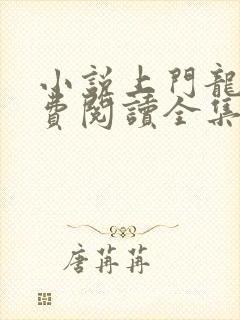 小說上門龍
費閱讀全集
唐苒苒